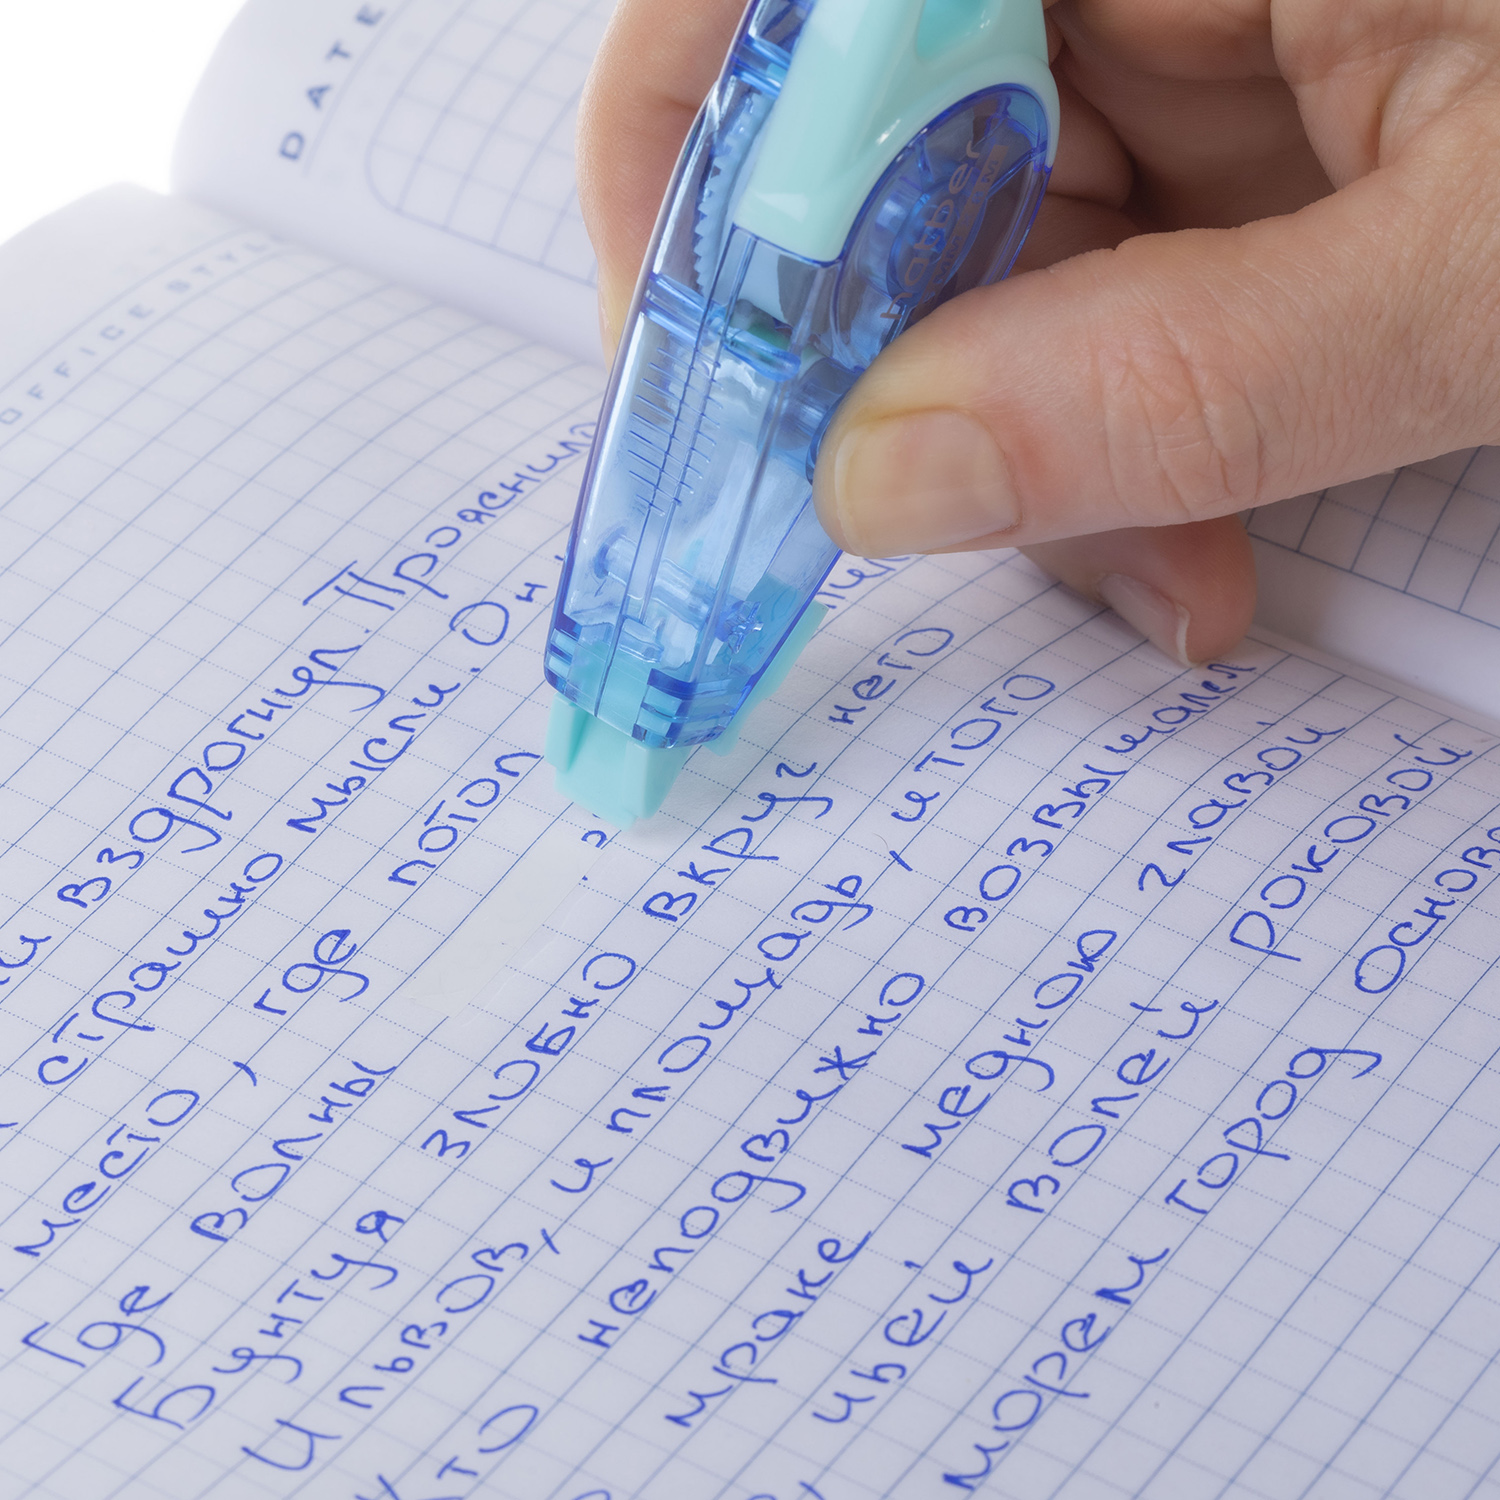 DATE
OFFICE STYL
hatber
вздрогнул. Прояснило
страшно мысли. Он
место, где потоп
Где волны
Бунтуя злобно вкруг него
И львов, и площадь, и того
Кто неподвижно возвышался
мраке медною главой
чьей волей роковой
морем город основа